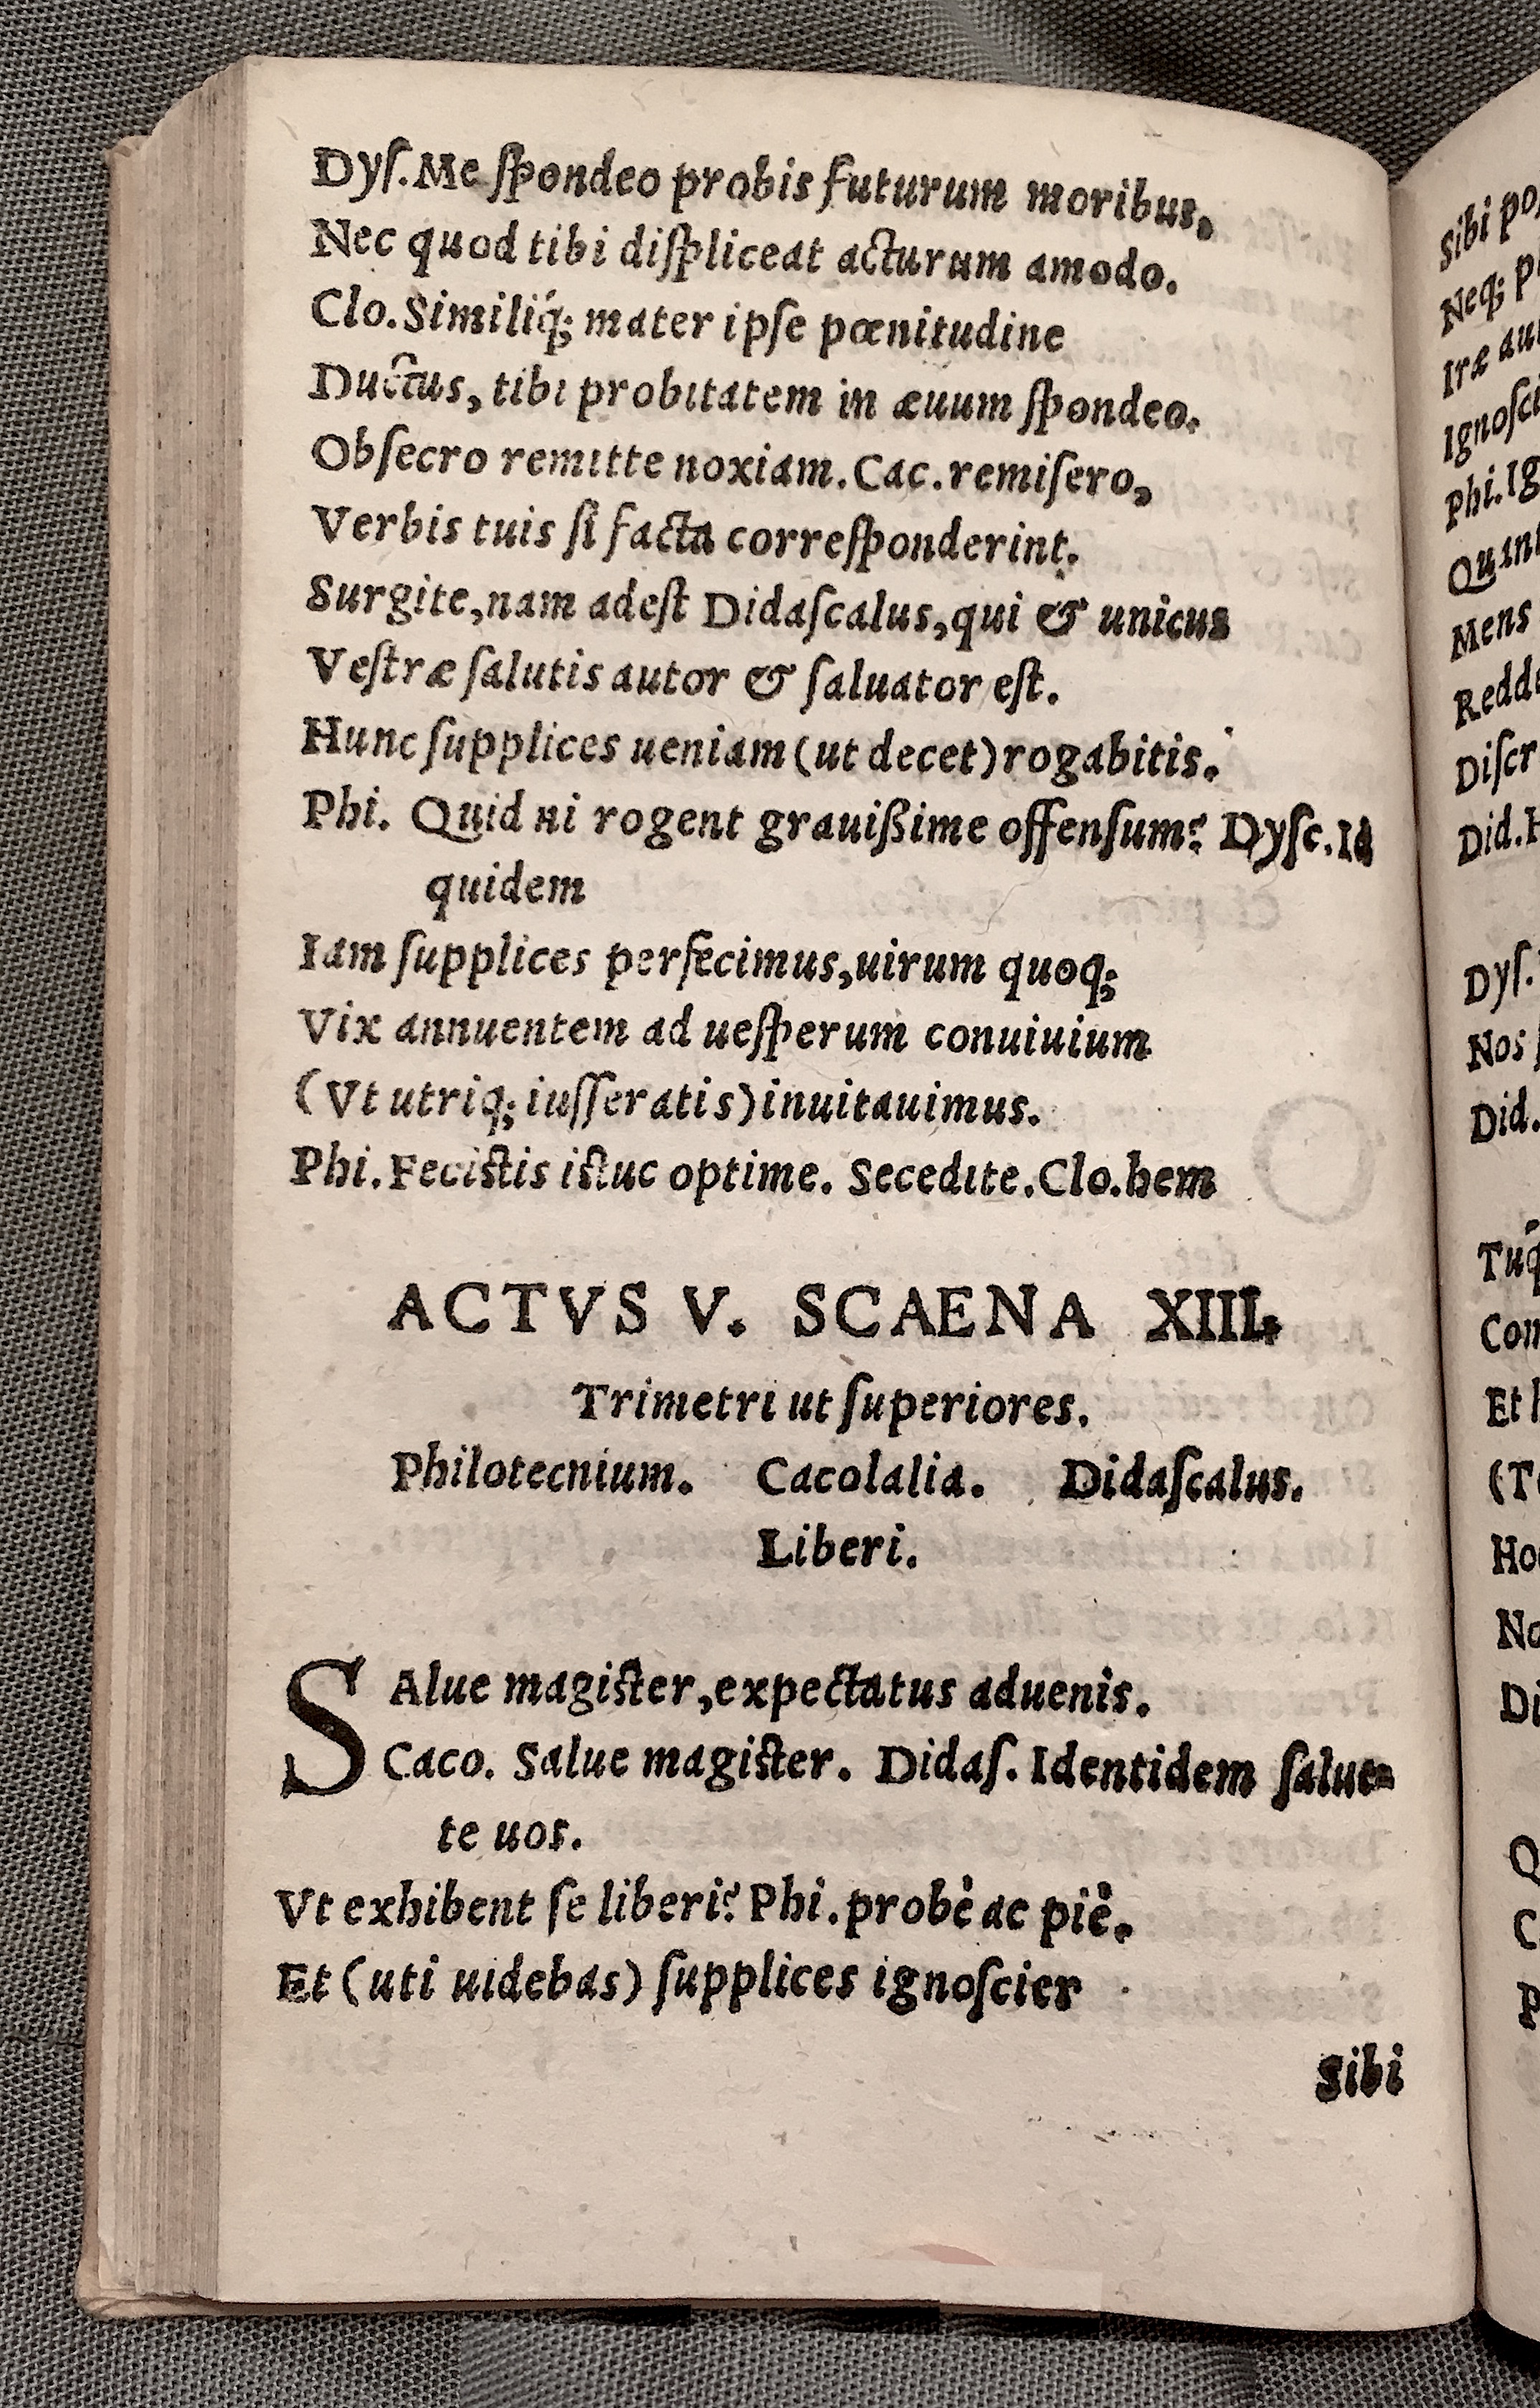 Dyſ. Me ſpondeo probis futurum moribus,
Nec quod tibi diſpliceat acturum amodo.
Clo. Similiq́; mater ipſe pœnitudine
Ductus, tibi probitatem in æuum ſpondeo.
Obſecro remitte noxiam. Cac. remiſero,
Verbis tuis ſi facta correſponderint.
Surgite, nam adeſt Didaſcalus, qui & unicus
Veſtræ ſalutis autor & ſaluator eſt.
Hunc ſupplices ueniam (ut decet) rogabitis.
Phi. Quid ni rogent grauißime offenſum? Dyſc. Id
quidem
Iam ſupplices perfecimus, uirum quoq;
Vix annuentem ad ueſperum conuiuium
(Vt utriq; iuſſeratis) inuitauimus.
Phi. Feciſtis iſtuc optime. Secedite. Clo. hem
ACTVS V. SCAENA XIII.
Trimetri ut ſuperiores.
Philotecnium. Cacolalia. Didaſcalus.
Liberi.
SAlue magiſter, expectatus aduenis.
Caco. Salue magiſter. Didaſ. Identidem ſalue-
te uos.
Vt exhibent ſe liberi? Phi. probè ac piè.
Et (uti uidebas) ſupplices ignoſcier
Sibi
Sibi
Neq;
Iræ
Phi.
Mens
Did.
Dyſ.
Nos
Did.
Et